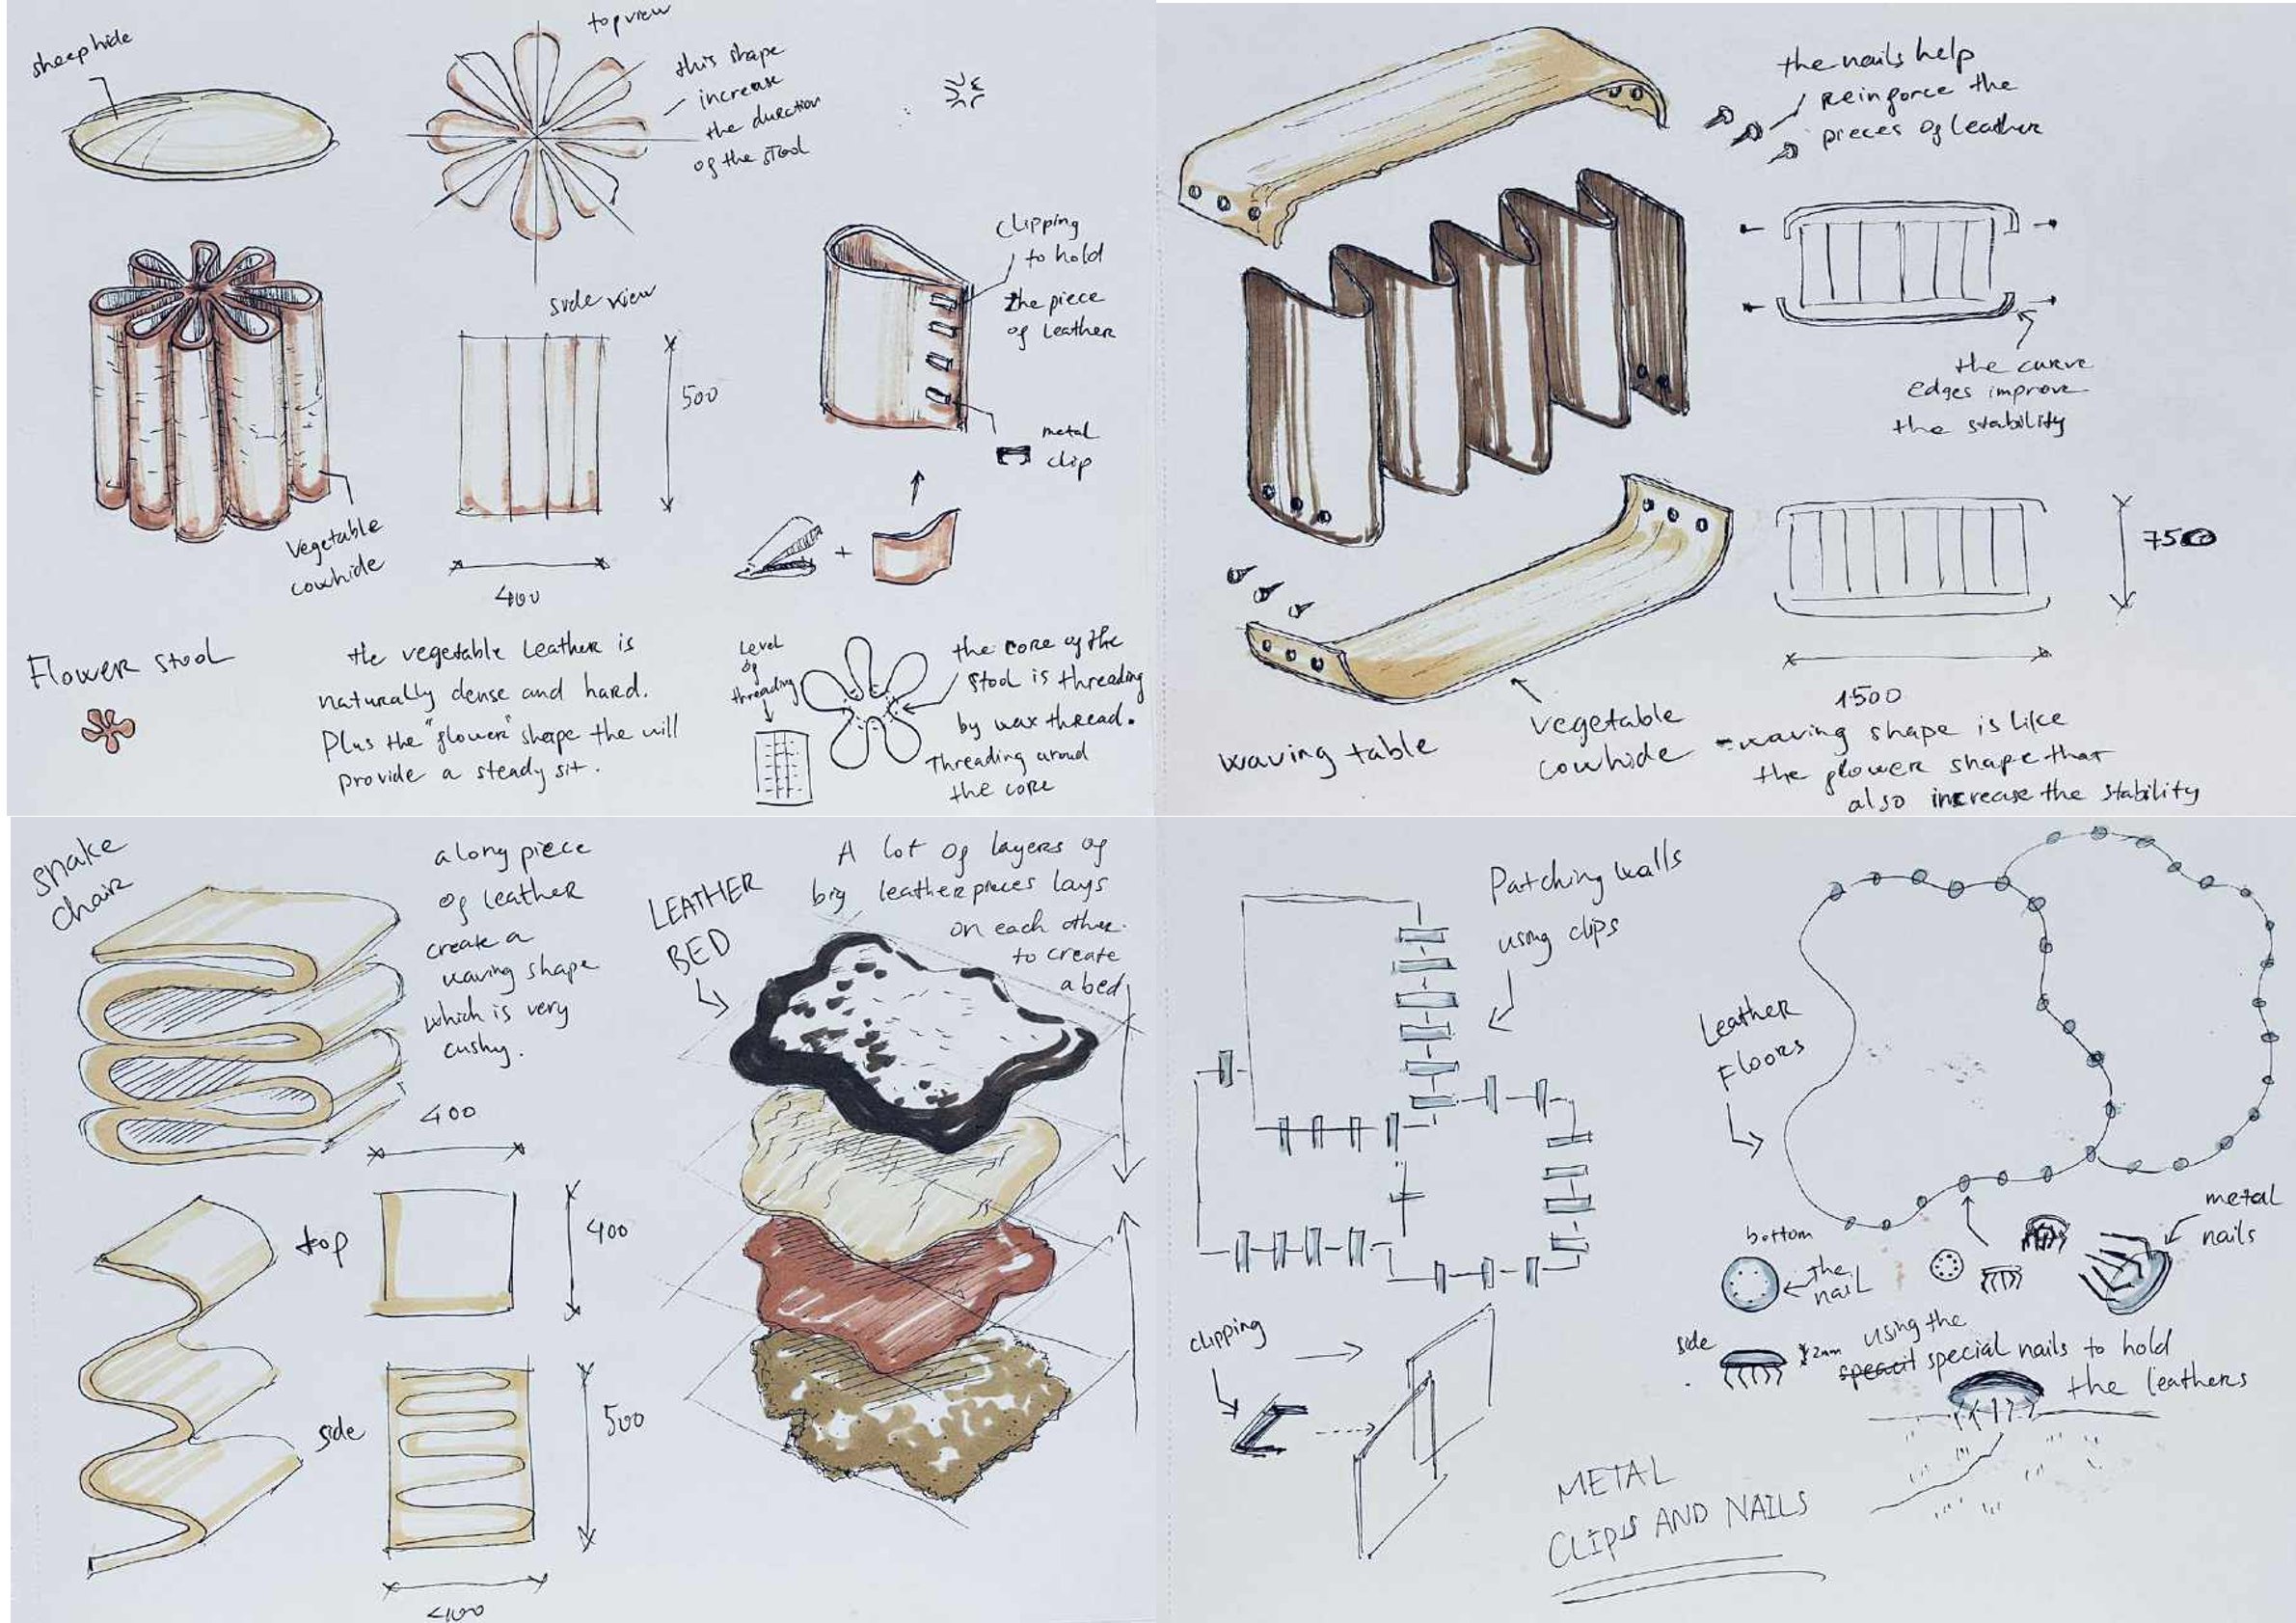 sheephide
top view
this shape
increase
the duration
of the stool
Clipping
to hold
the piece
of leather
metal
clip
side view
500
400
Vegetable
cowhide
Flower stool
the vegetable leather is
naturally dense and hard.
Plus the "flower" shape the will
provide a steady sit.
Level
of
threading
the core of the
stool is threading
by wax thread.
Threading around
the core
the nails help
Reinforce the
pieces of leather
the curve
edges improve
the stability
750
1500
waving table
vegetable
cowhide
-waving shape is like
the flower shape that
also increase the stability
snake
chair
a long piece
of leather
create a
waving shape
which is very
cushy.
400
top
400
side
500
400
LEATHER
BED
A lot of layers of
big leather pieces lays
on each other
to create
a bed
Patching walls
using clips
Leather
Floors
metal
nails
bottom
the
nail
side
2mm
using the
special nails to hold
the leathers
clipping
METAL
CLIPS AND NAILS